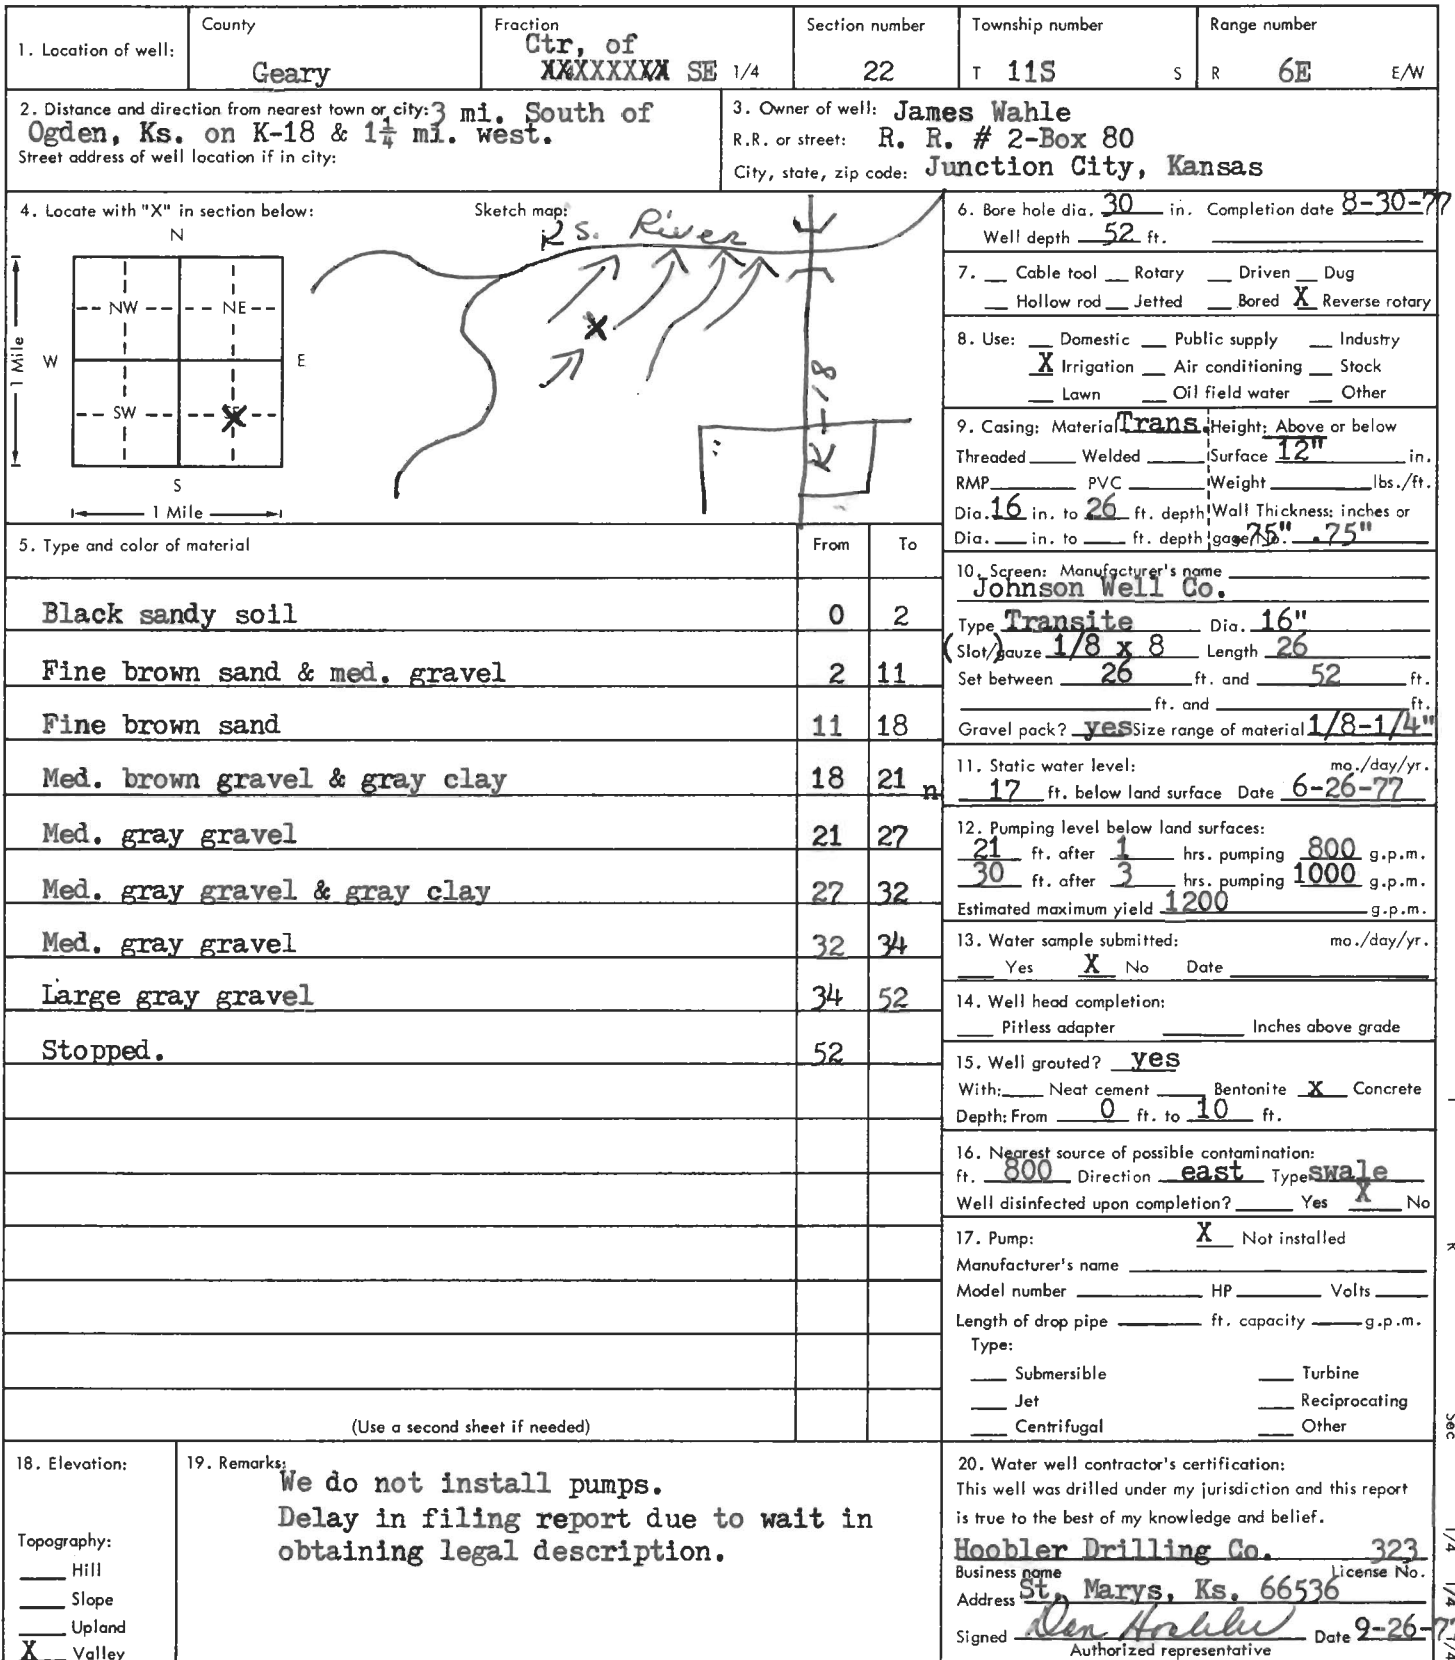 1. Location of well:
County
Geary
Fraction
Ctr, of
XXXXXXXX SE 1/4
Section number
22
Township number
T 11S S
Range number
R 6E E/W
2. Distance and direction from nearest town or city: 3 mi. South of
Ogden, Ks. on K-18 & 1¼ mi. west.
Street address of well location if in city:
3. Owner of well: James Wahle
R.R. or street: R. R. # 2-Box 80
City, state, zip code: Junction City, Kansas
4. Locate with "X" in section below:
N
NW NE
W E
SW X
S
1 Mile
1 Mile
Sketch map:
KS. River
X
K-18
5. Type and color of material From To
Black sandy soil 0 2
Fine brown sand & med. gravel 2 11
Fine brown sand 11 18
Med. brown gravel & gray clay 18 21 n
Med. gray gravel 21 27
Med. gray gravel & gray clay 27 32
Med. gray gravel 32 34
Large gray gravel 34 52
Stopped. 52
(Use a second sheet if needed)
6. Bore hole dia. 30 in. Completion date 8-30-77
Well depth 52 ft.
7. Cable tool Rotary Driven Dug
Hollow rod Jetted Bored X Reverse rotary
8. Use: Domestic Public supply Industry
X Irrigation Air conditioning Stock
Lawn Oil field water Other
9. Casing: Material Trans. Height: Above or below
Threaded Welded Surface 12" in.
RMP PVC Weight lbs./ft.
Dia. 16 in. to 26 ft. depth Wall Thickness: inches or
Dia. in. to ft. depth gage No. .75" .75"
10. Screen: Manufacturer's name
Johnson Well Co.
Type Transite Dia. 16"
(Slot/)gauze 1/8 x 8 Length 26
Set between 26 ft. and 52 ft.
ft. and ft.
Gravel pack? yes Size range of material 1/8-1/4"
11. Static water level: mo./day/yr.
17 ft. below land surface Date 6-26-77
12. Pumping level below land surfaces:
21 ft. after 1 hrs. pumping 800 g.p.m.
30 ft. after 3 hrs. pumping 1000 g.p.m.
Estimated maximum yield 1200 g.p.m.
13. Water sample submitted: mo./day/yr.
Yes X No Date
14. Well head completion:
Pitless adapter Inches above grade
15. Well grouted? yes
With: Neat cement Bentonite X Concrete
Depth: From 0 ft. to 10 ft.
16. Nearest source of possible contamination:
ft. 800 Direction east Type swale
Well disinfected upon completion? Yes X No
17. Pump: X Not installed
Manufacturer's name
Model number HP Volts
Length of drop pipe ft. capacity g.p.m.
Type:
Submersible Turbine
Jet Reciprocating
Centrifugal Other
18. Elevation:
Topography:
Hill
Slope
Upland
X Valley
19. Remarks:
We do not install pumps.
Delay in filing report due to wait in
obtaining legal description.
20. Water well contractor's certification:
This well was drilled under my jurisdiction and this report
is true to the best of my knowledge and belief.
Hoobler Drilling Co. 323
Business name License No.
Address St. Marys, Ks. 66536
Signed Dan Hoobler Date 9-26-77
Authorized representative
Sec
1/4 1/4 1/4